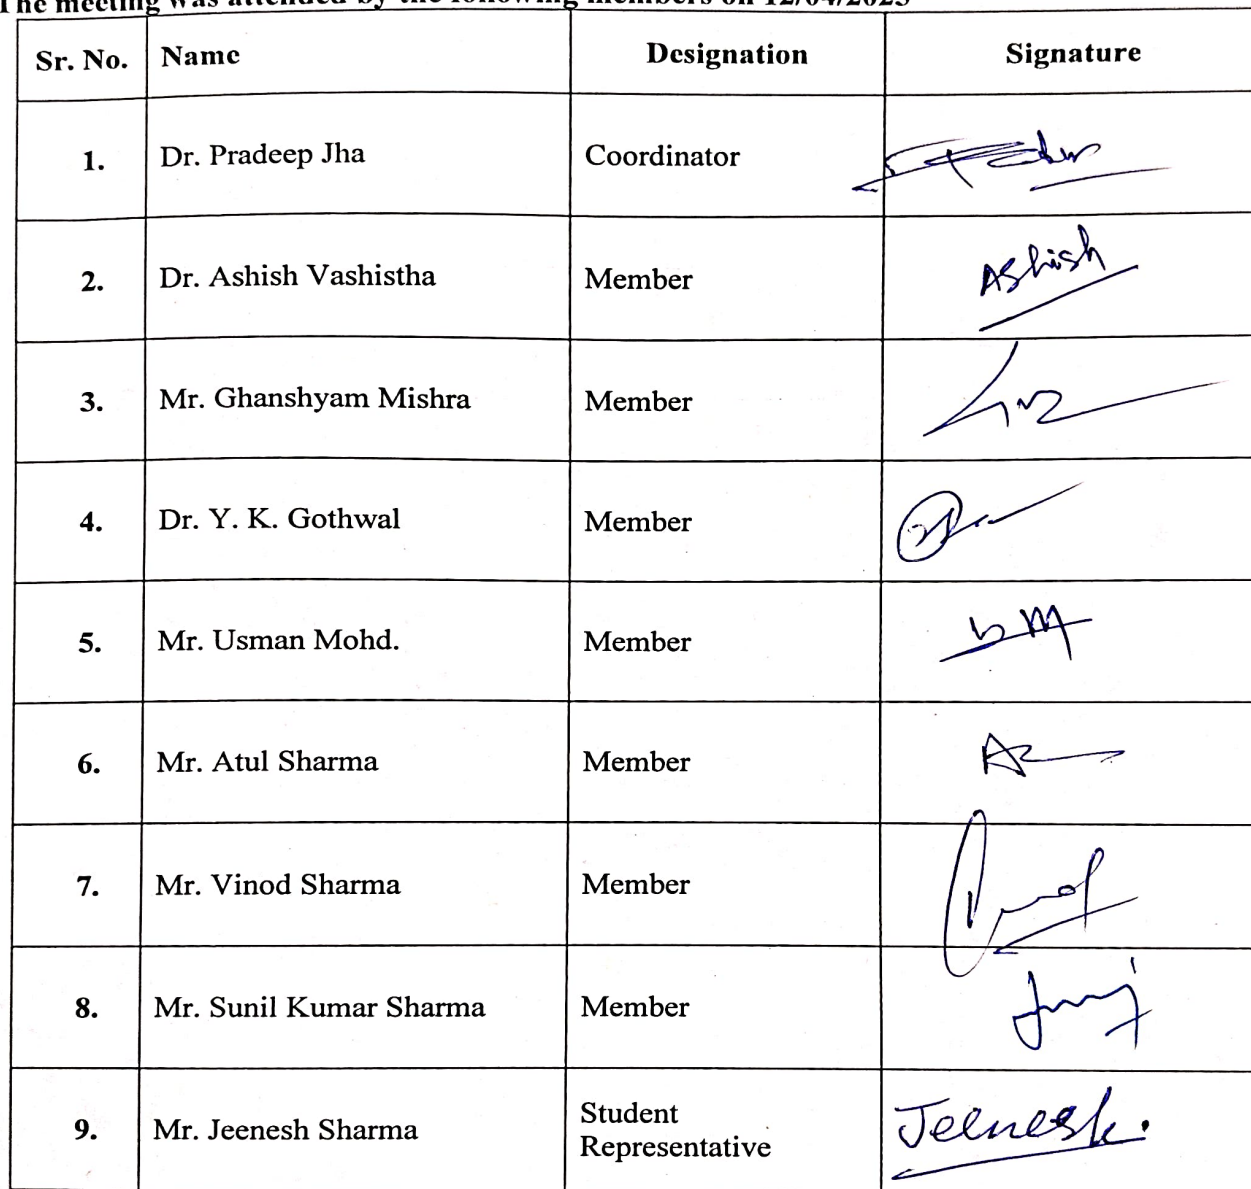 The meeting was attended by the following members on 12/04/2023
Sr. No. Name Designation Signature
1. Dr. Pradeep Jha Coordinator
2. Dr. Ashish Vashistha Member Ashish
3. Mr. Ghanshyam Mishra Member
4. Dr. Y. K. Gothwal Member
5. Mr. Usman Mohd. Member
6. Mr. Atul Sharma Member
7. Mr. Vinod Sharma Member
8. Mr. Sunil Kumar Sharma Member
9. Mr. Jeenesh Sharma Student Representative Jeenesh.